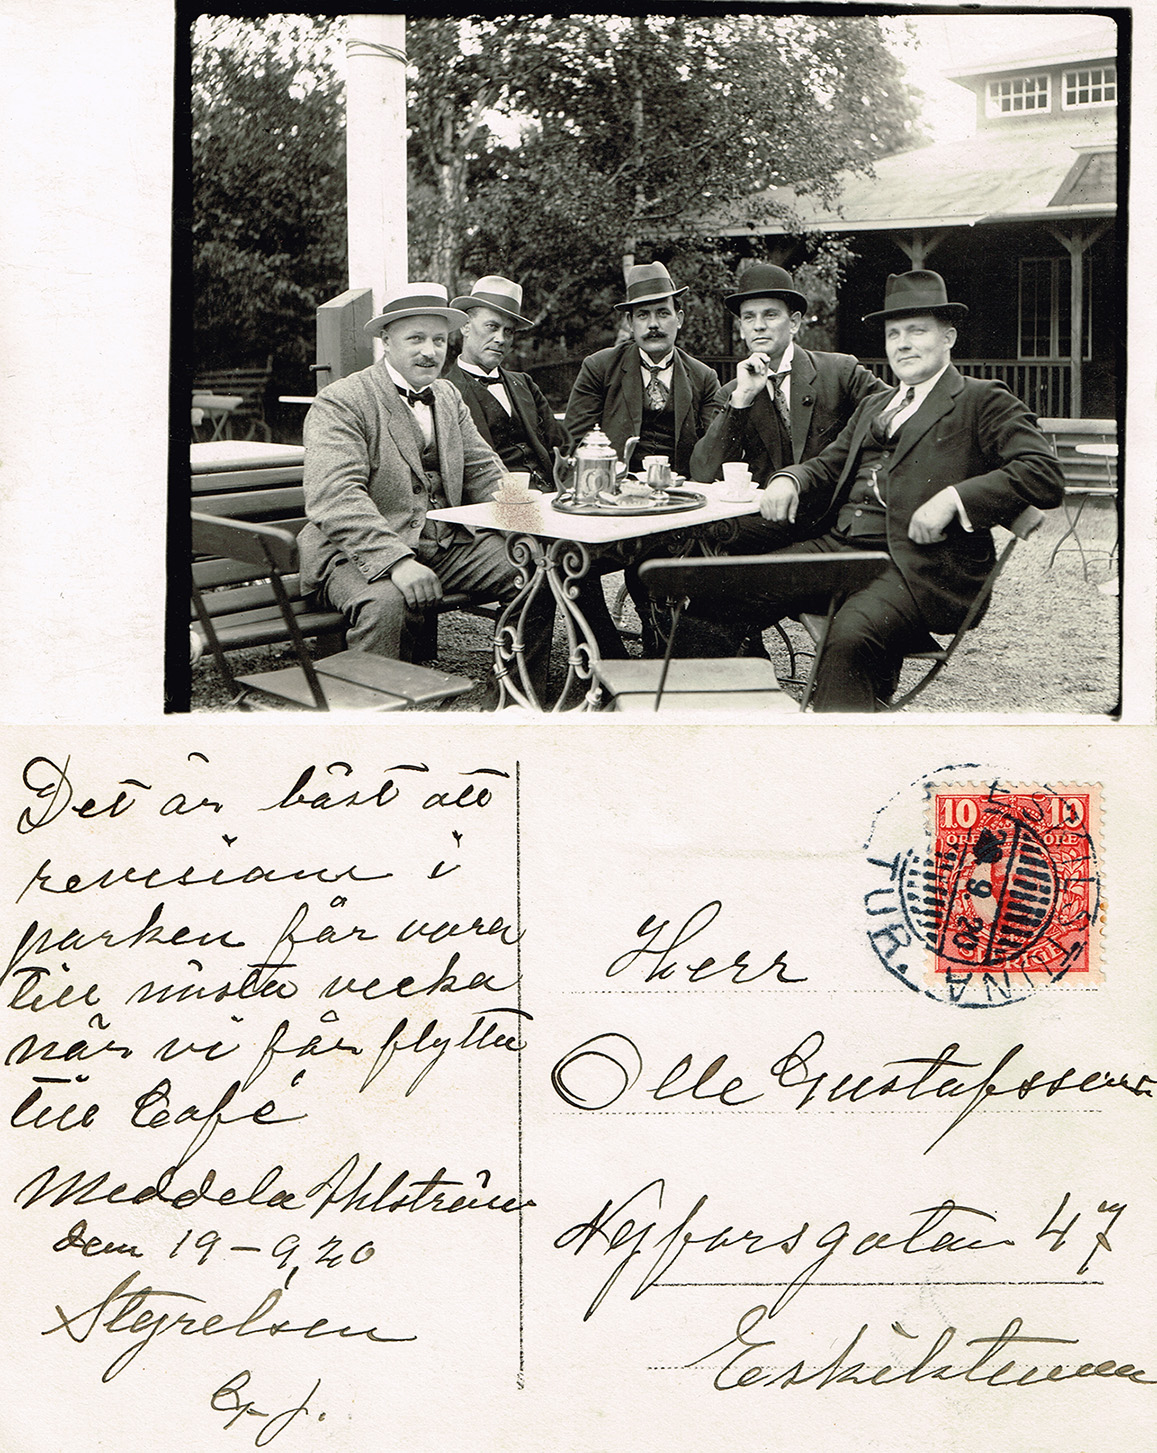 Det är bäst att
revisian i
parken får vara
till nästa vecka
när vi får flytta
till Café
Meddela Ahlström
den 19-9, 20
Styrelsen
G. J.
10 10
ÖRE ÖRE
SVERIGE
ESKILSTUNA
20 9 20
TUR.
Herr
Olle Gustafsson
Nyforsgatan 47
Eskilstuna